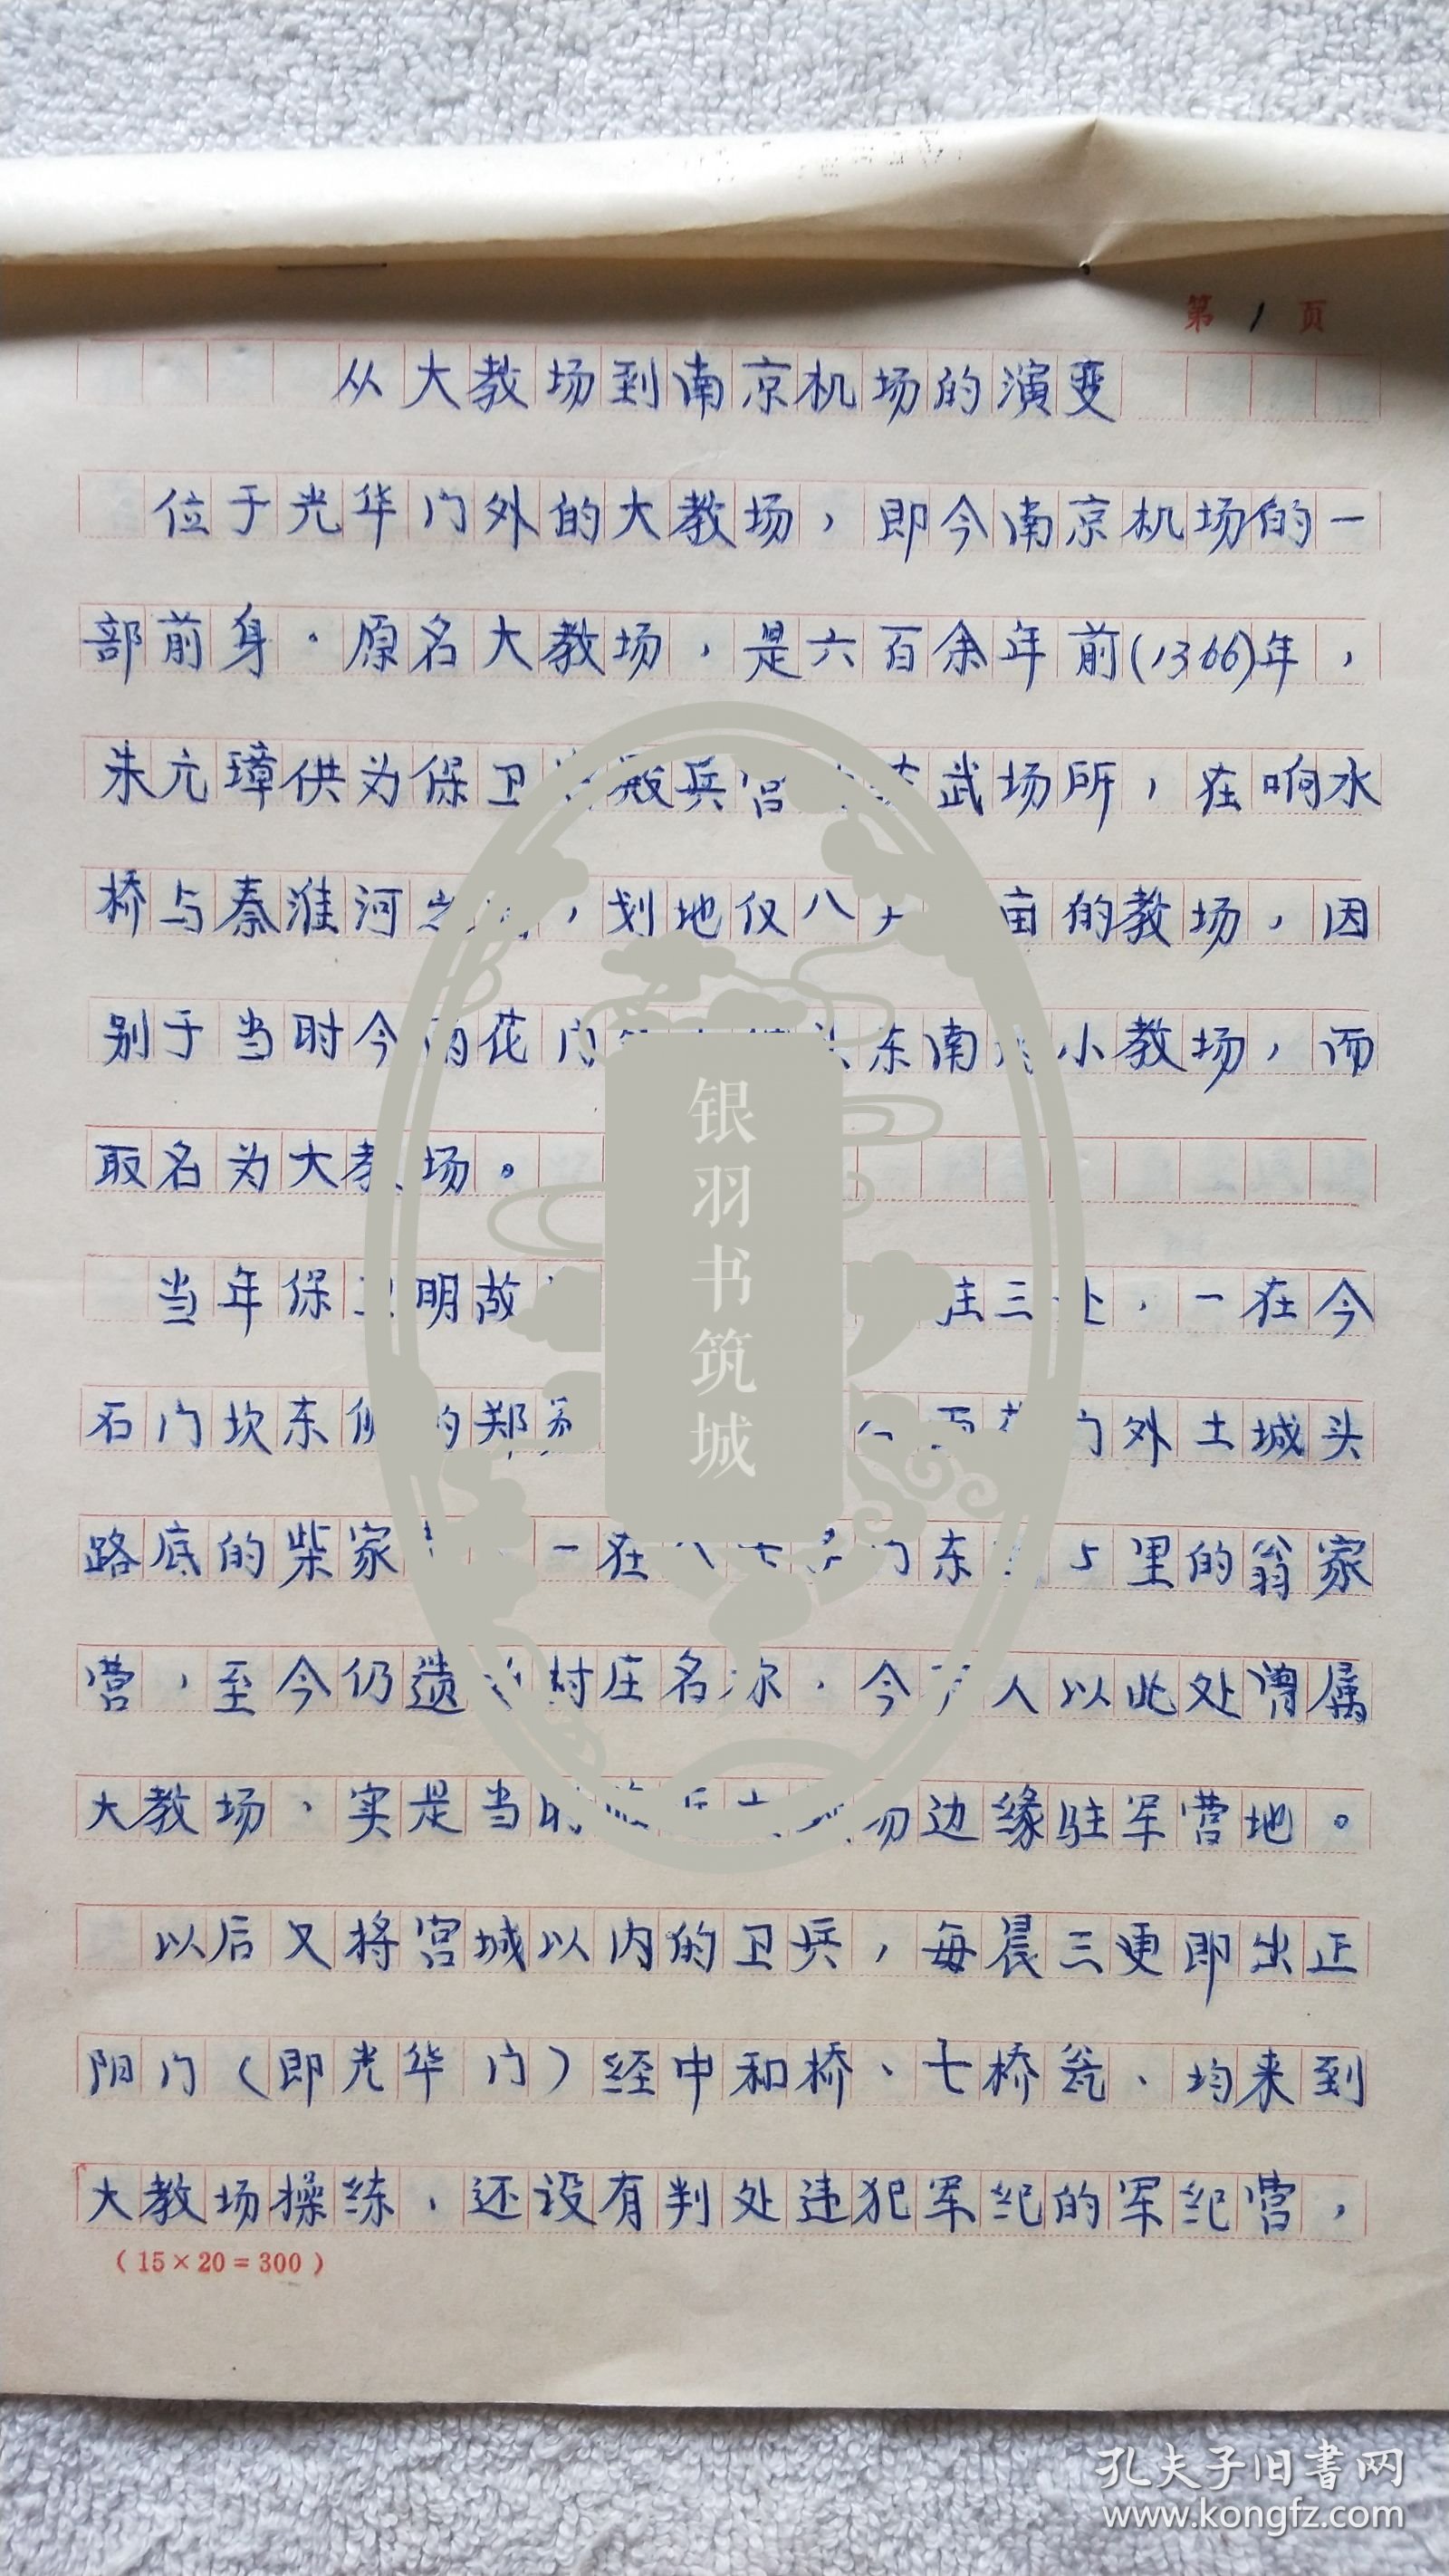 第1页
从大教场到南京机场的演变
位于光华门外的大教场，即今南京机场的一
部前身．原名大教场，是六百余年前(1366)年，
朱亢璋供为保卫殿兵宫武场所，在响水
桥与秦淮河之，划地仅八亩的教场，因
别于当时今雨花门东南小教场，而
取名为大教场。
当年保明故三处，一在今
石门坎东侧的郑门外土城头
路底的柴家一在门东5里的翁家
营，至今仍遗村庄名称．今人以此处谓属
大教场，实是当时边缘驻军营地。
以后又将宫城以内的卫兵，每晨三更即出正
阳门（即光华门）经中和桥、七桥瓮、均来到
大教场操练．还设有判处违犯军纪的军纪营，
(15×20=300)
银羽书筑城
孔夫子旧书网
www.kongfz.com